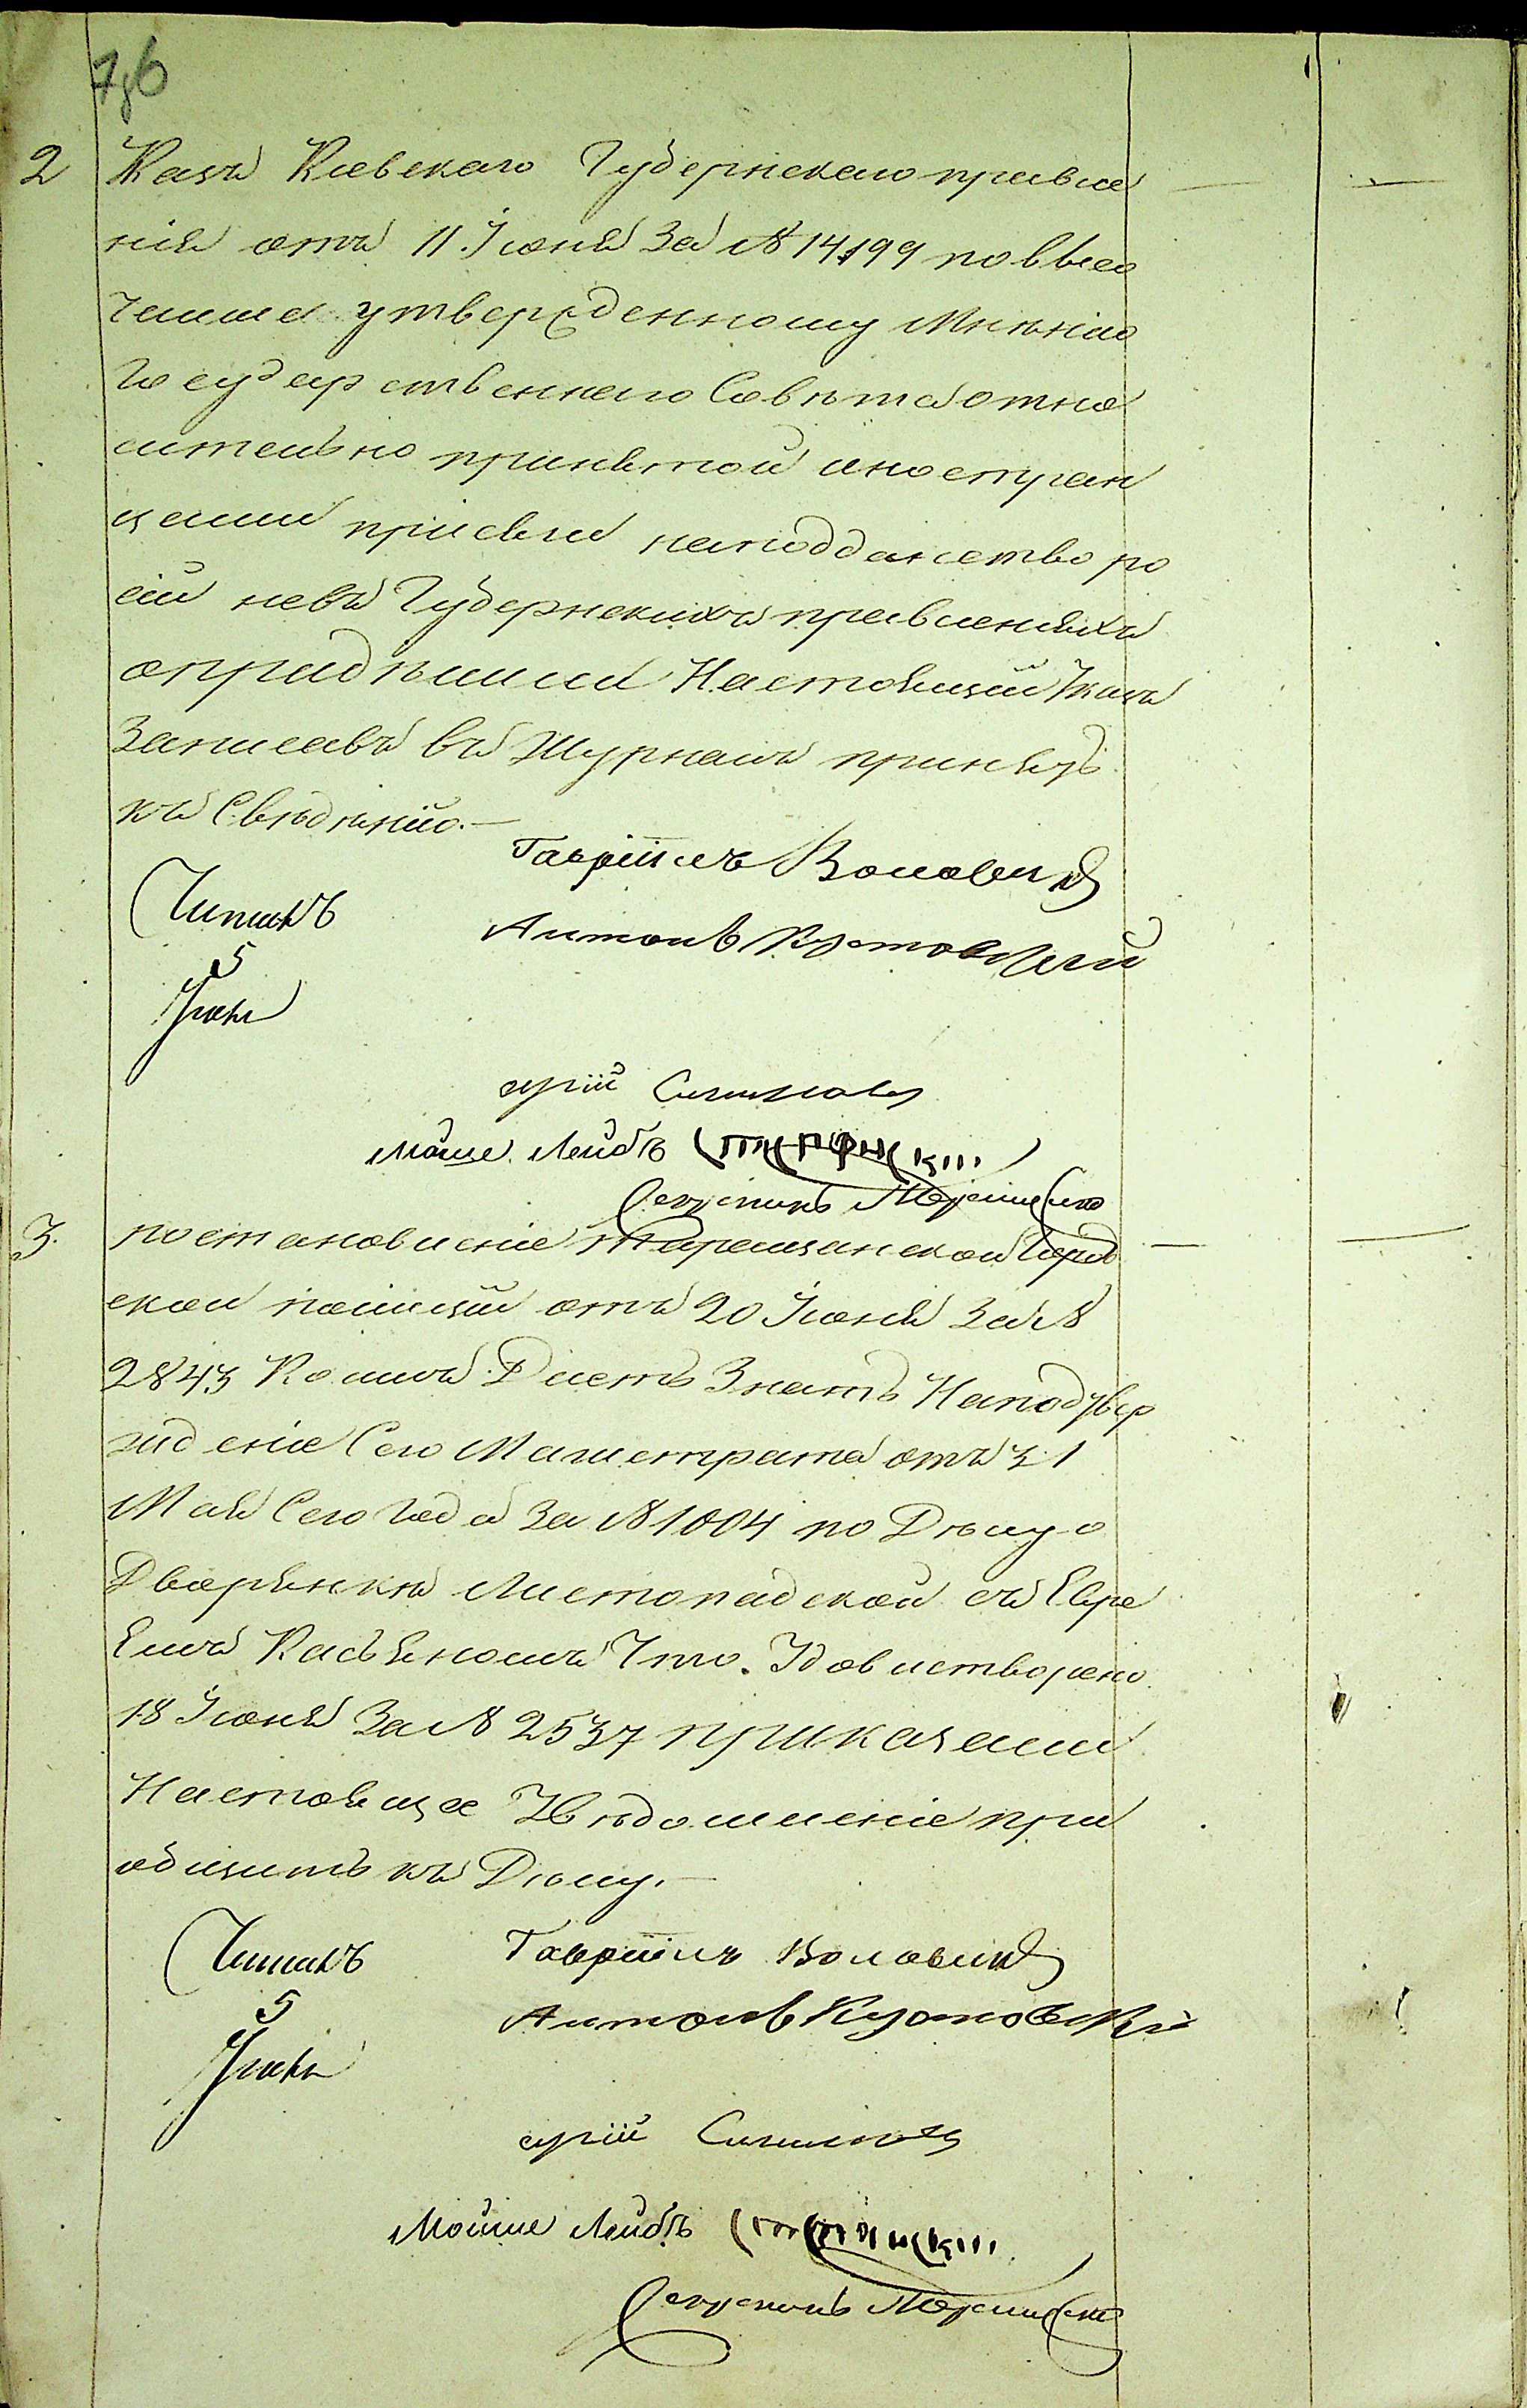 76
2 Казъ Киевскаго Губернскаго правле
нія отъ 11. Іюня За № 14,199 по высо
чаише утвержденному Мнѣнію
Государственнаго Совѣта отно
сительно принятой иностран
цами присяги на подданство ро
сіи не въ Губернскихъ правленияхъ
опридѣлили Настоящій Указъ
Записавъ въ Журналъ принять
къ Свѣдѣнію.—
Гавріилъ
Читалъ
Антонъ
5
Іюля
Мойше Лейбъ
3. постановление таращанской город
ской полиціи отъ 20 Іюня За №
2843 Коимъ Даетъ Знать На подтвер
жденіе Сего Магистрата отъ 31
Мая Сего года За № 1004 по Дѣлу о
Дворянкѣ Листопадской съ Евре
емъ Касьяномъ Что. Удовлетворено
18 Іюня За № 2537 приказали
Настоящее Увѣдомление при
общить къ Дѣлу.—
Читалъ Гавріилъ
5 Антонъ
Іюля
Мойше Лейбъ